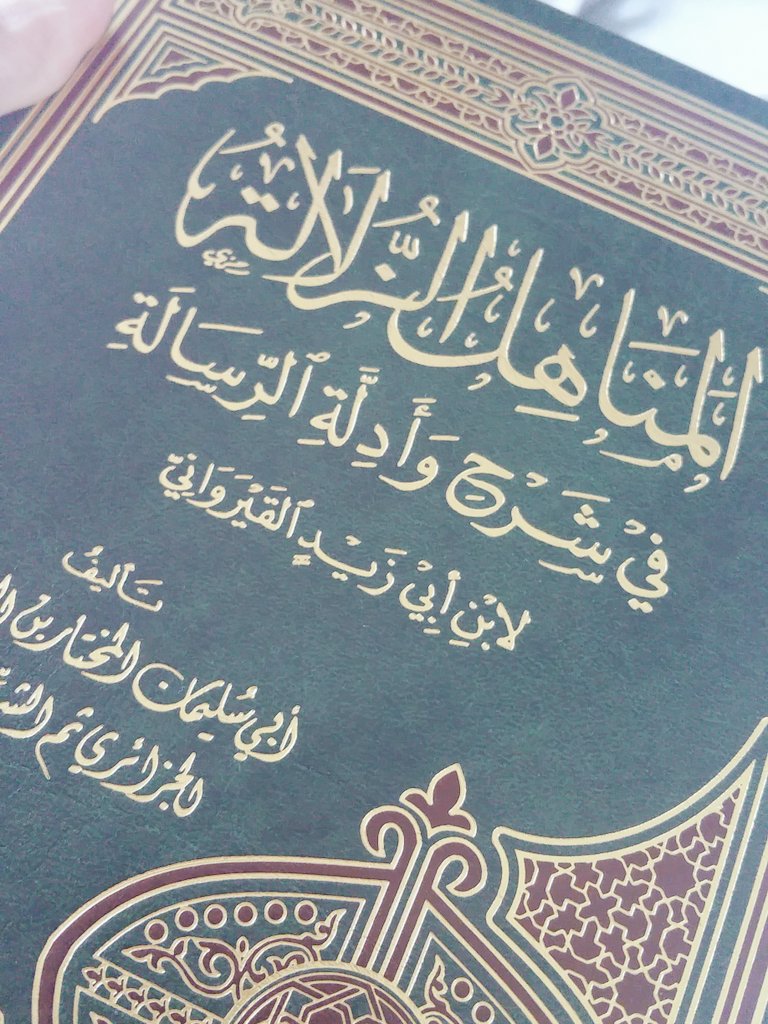 المناهل الزلالة
في شرح وأدلة الرسالة
لابن أبي زيد القيرواني
تأليف
أبي سليمان المختار بن
الجزائري ثم